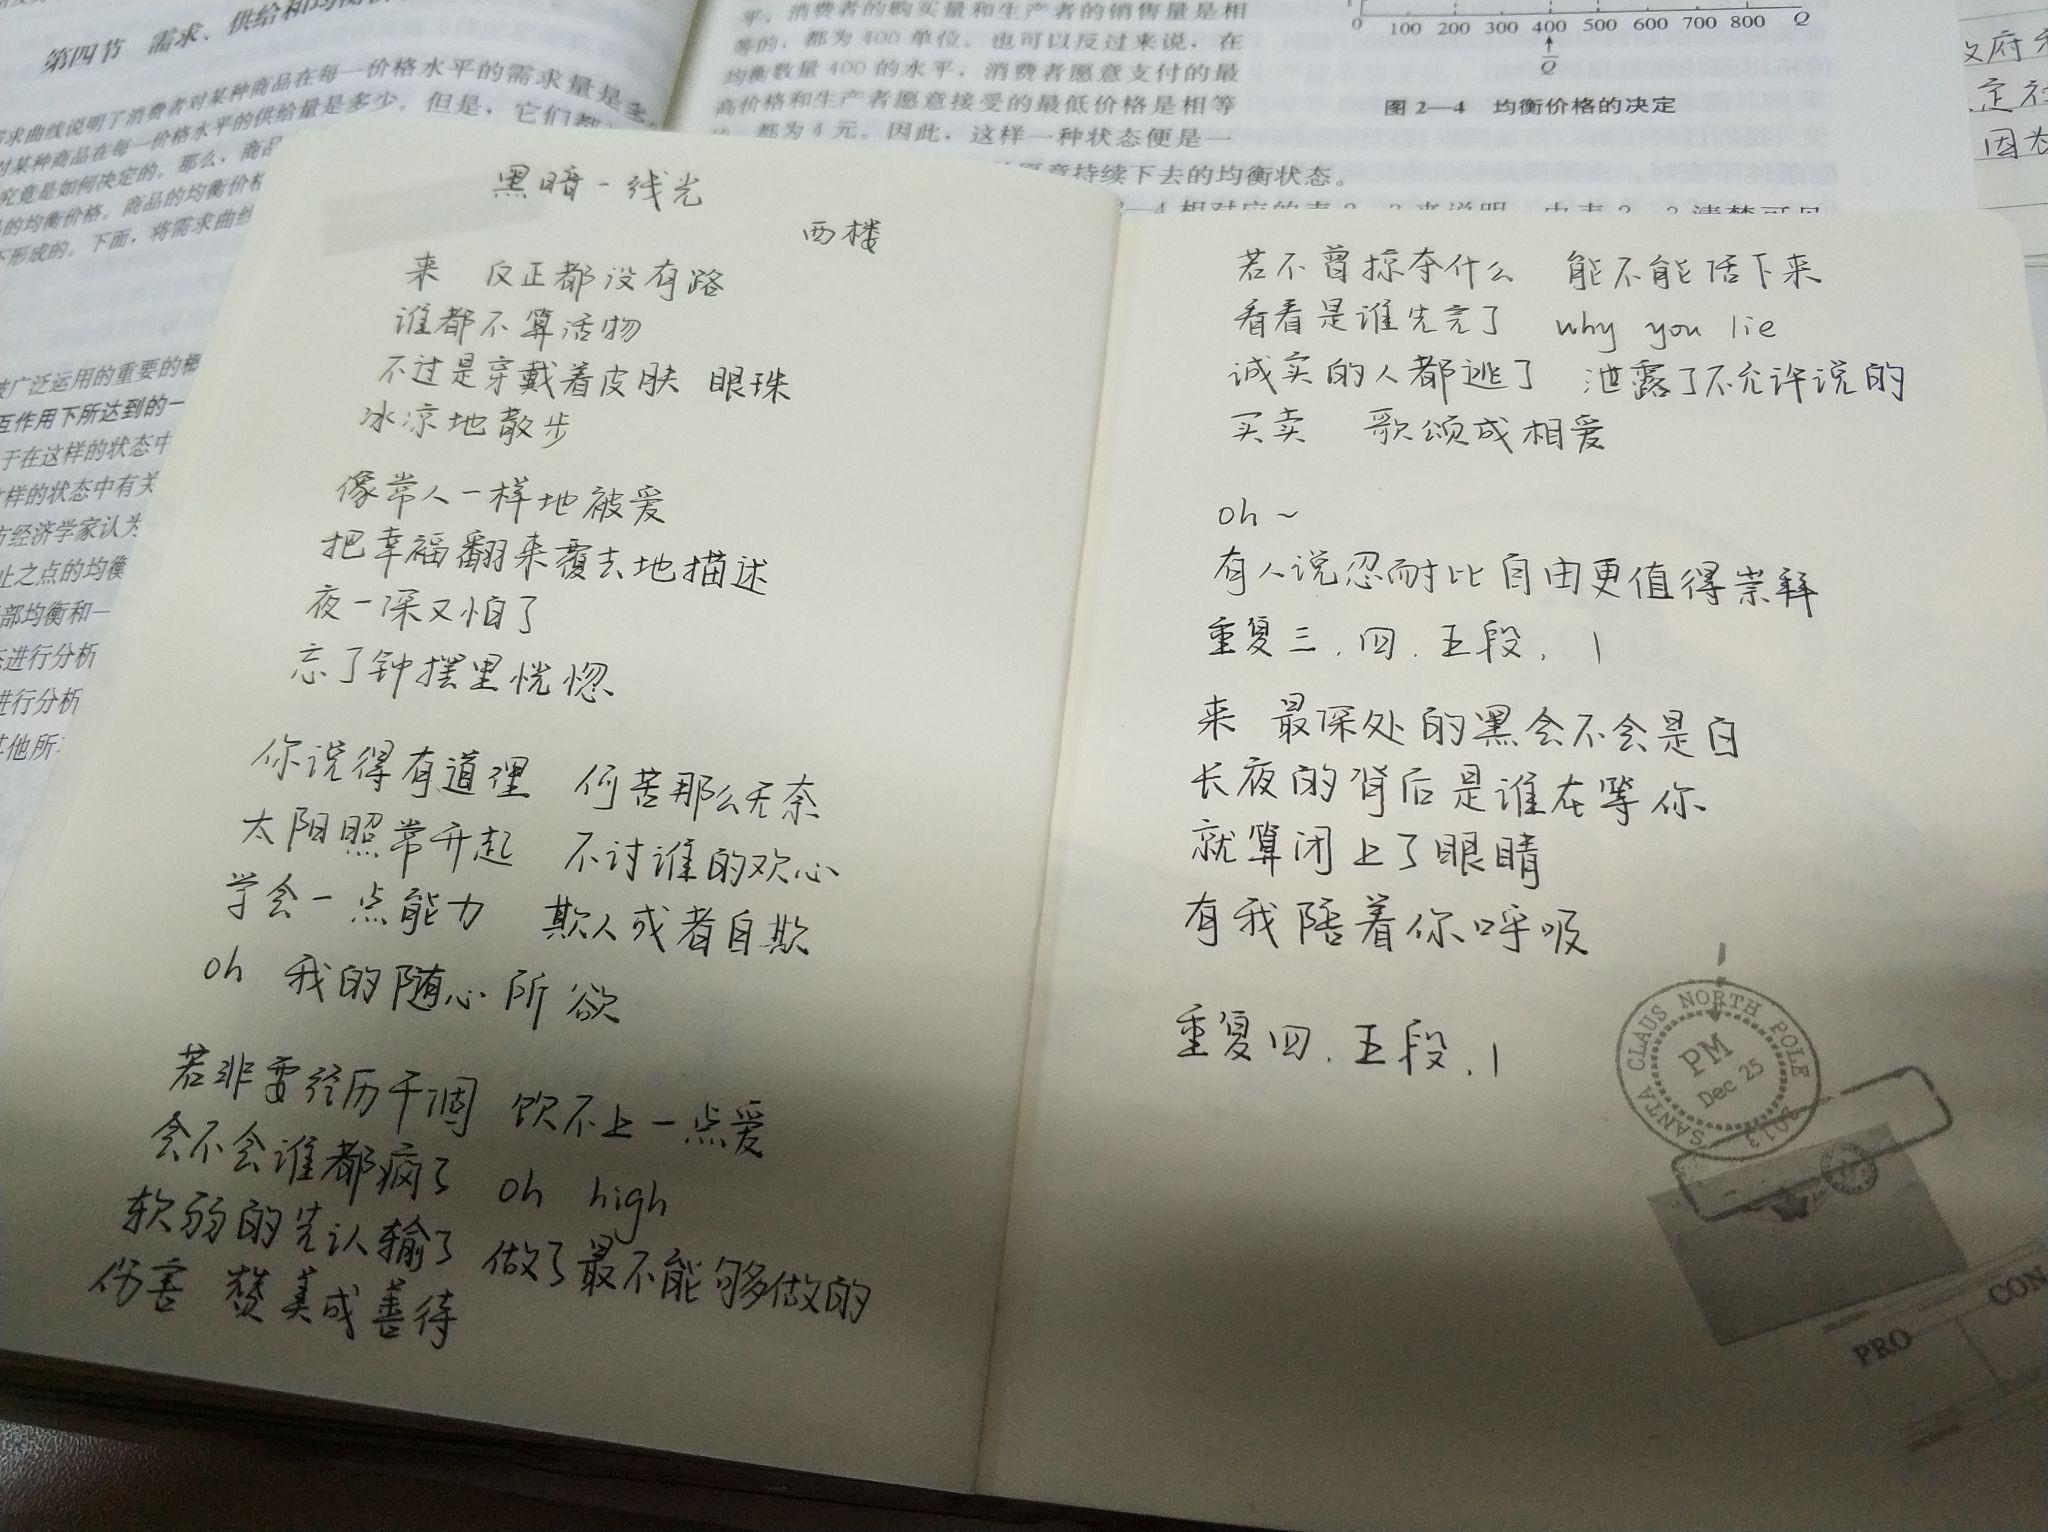 第四节 需求、供给和均衡
求曲线说明了消费者对某种商品在每一价格水平的需求量是多
对某种商品在每一价格水平的供给量是多少。但是，它们都
究竟是如何决定的。那么，商品
的均衡价格。商品的均衡价格
下形成的。下面，将需求曲线
被广泛运用的重要的概
互作用下所达到的一
于在这样的状态中
这样的状态中有关
方经济学家认为
止之点的均衡
部均衡和一
态进行分析
进行分析
其他所
平，消费者的购买量和生产者的销售量是相
等的，都为400单位。也可以反过来说，在
均衡数量400的水平，消费者愿意支付的最
高价格和生产者愿意接受的最低价格是相等
都为4元。因此，这样一种状态便是一
愿意持续下去的均衡状态。
0 100 200 300 400 500 600 700 800 Q
Q
图2—4 均衡价格的决定
政府
定
因为
黑暗一线光
西楼
来 反正都没有路
谁都不算活物
不过是穿戴着皮肤 眼珠
冰凉地散步
像常人一样地被爱
把幸福翻来覆去地描述
夜一深又怕了
忘了钟摆里恍惚
你说得有道理 何苦那么无奈
太阳照常升起 不讨谁的欢心
学会一点能力 欺人或者自欺
oh 我的随心所欲
若非要经历干涸 饮不上一点爱
会不会谁都疯了 oh high
软弱的先认输了 做了最不能够做的
伤害 赞美成善待
若不曾掠夺什么 能不能活下来
看看是谁先完了 why you lie
诚实的人都逃了 泄露了不允许说的
买卖 歌颂成相爱
oh ~
有人说忍耐比自由更值得崇拜
重复三、四、五段、1
来 最深处的黑会不会是白
长夜的背后是谁在等你
就算闭上了眼睛
有我陪着你呼吸
重复四、五段、1
SANTA CLAUS NORTH POLE
PM
Dec 25
2013
PRO
CON